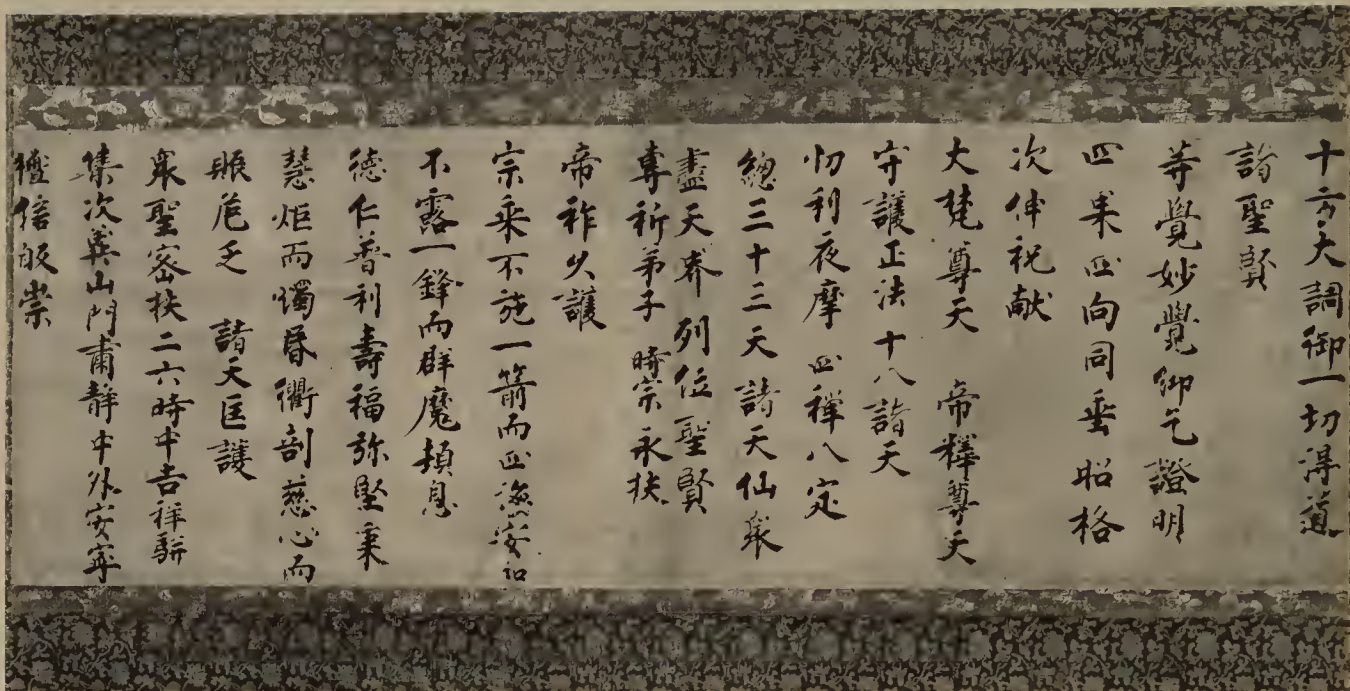 十方大調御一切得道
諸聖賢
等覺妙覺仰乞證明
四果四向同垂昭格
次伸祝献
大梵尊天　帝釋尊天
守護正法十八諸天
忉利夜摩四禪八定
總三十三天諸天仙衆
盡天界列位聖賢
專祈弟子時宗永扶
帝祚久護
宗乘不施一箭而四海安和
不露一鋒而群魔頓息
德仁普利壽福弥堅秉
慧炬而燭昏衢剖慈心而
賑危乏　諸天匡護
衆聖密扶二六時中吉祥駢
集次冀山門肅靜中外安寧
檀信皈崇